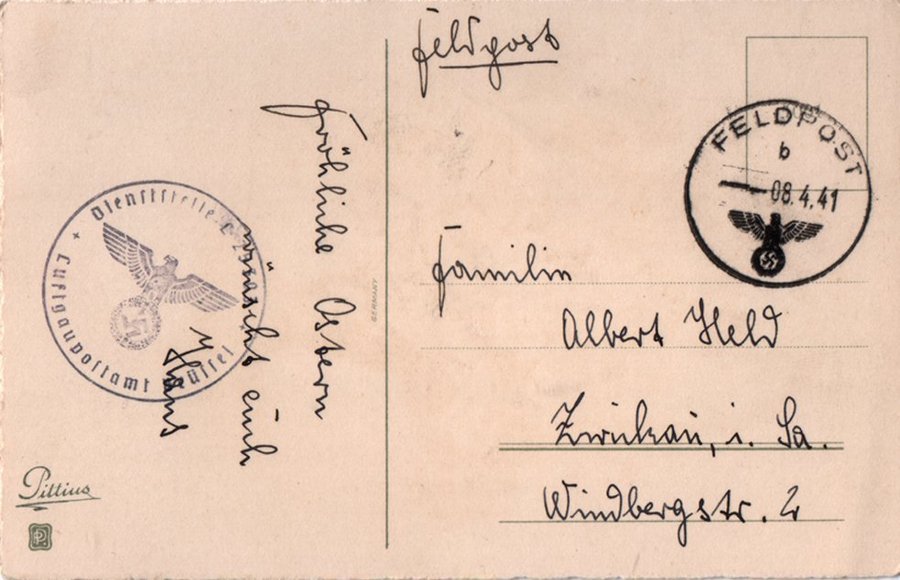 Feldpost
FELDPOST
b
08.4.41
Familie
Albert Held
Zwickau, i. Sa.
Windbergstr. 2
Fröhliche Ostern
wünscht euch
Hans
Dienststelle
Luftgaupostamt Brüssel
GERMANY
Pittius